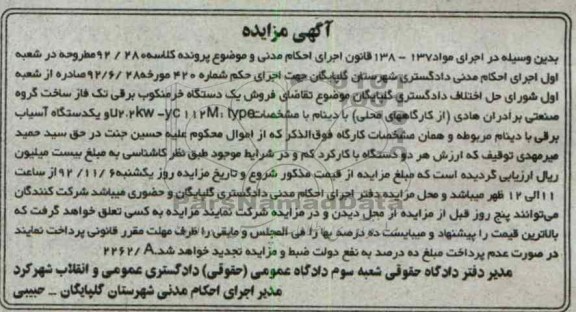 آگهی مزایده
بدین وسیله در اجرای مواد۱۳۷ - ۱۳۸قانون اجرای احکام مدنی و موضوع پرونده کلاسه۲۸۰ / ۹۲مطروحه در شعبه
اول اجرای احکام مدنی دادگستری شهرستان گلپایگان جهت اجرای حکم شماره ۴۲۰ مورخه۹۲/۶/۲۸صادره از شعبه
اول شورای حل اختلاف دادگستری گلپایگان موضوع تقاضای فروش یک دستگاه خرمنکوب برقی تک فاز ساخت گروه
صنعتی برادران هادی (از کارگاههای محلی) با دینام با مشخصات
برقی با دینام مربوطه و همان مشخصات کارگاه فوق‌الذکر که از اموال محکوم علیه حسین جنت در حق سید حمید
میرمهدی توقیف که ارزش هر دو دستگاه با کارکرد کم و در شرایط موجود طبق نظر کاشناسی به مبلغ بیست میلیون
ریال ارزیابی گردیده است که مبلغ مزایده از قیمت مذکور شروع و تاریخ مزایده روز یکشنبه۹۲/۱۱/۶ از ساعت
۱۱الی ۱۲ ظهر میباشد و محل مزایده دفتر اجرای احکام مدنی دادگستری گلپایگان و حضوری میباشد شرکت کنندگان
می‌توانند پنج روز قبل از مزایده از محل دیدن و در مزایده شرکت نمایند مزایده به کسی تعلق خواهد گرفت که
بالاترین قیمت را پیشنهاد و میبایست ده درصد بها را فی المجلس و مابقی را ظرف مهلت مقرر قانونی پرداخت نمایند
در صورت عدم پرداخت مبلغ ده درصد به نفع دولت ضبط و مزایده تجدید خواهد شد.۲۲۶۲/A
مدیر دفتر دادگاه حقوقی شعبه سوم دادگاه عمومی (حقوقی) دادگستری عمومی و انقلاب شهرکرد
مدیر اجرای احکام مدنی شهرستان گلپایگان - حبیبی